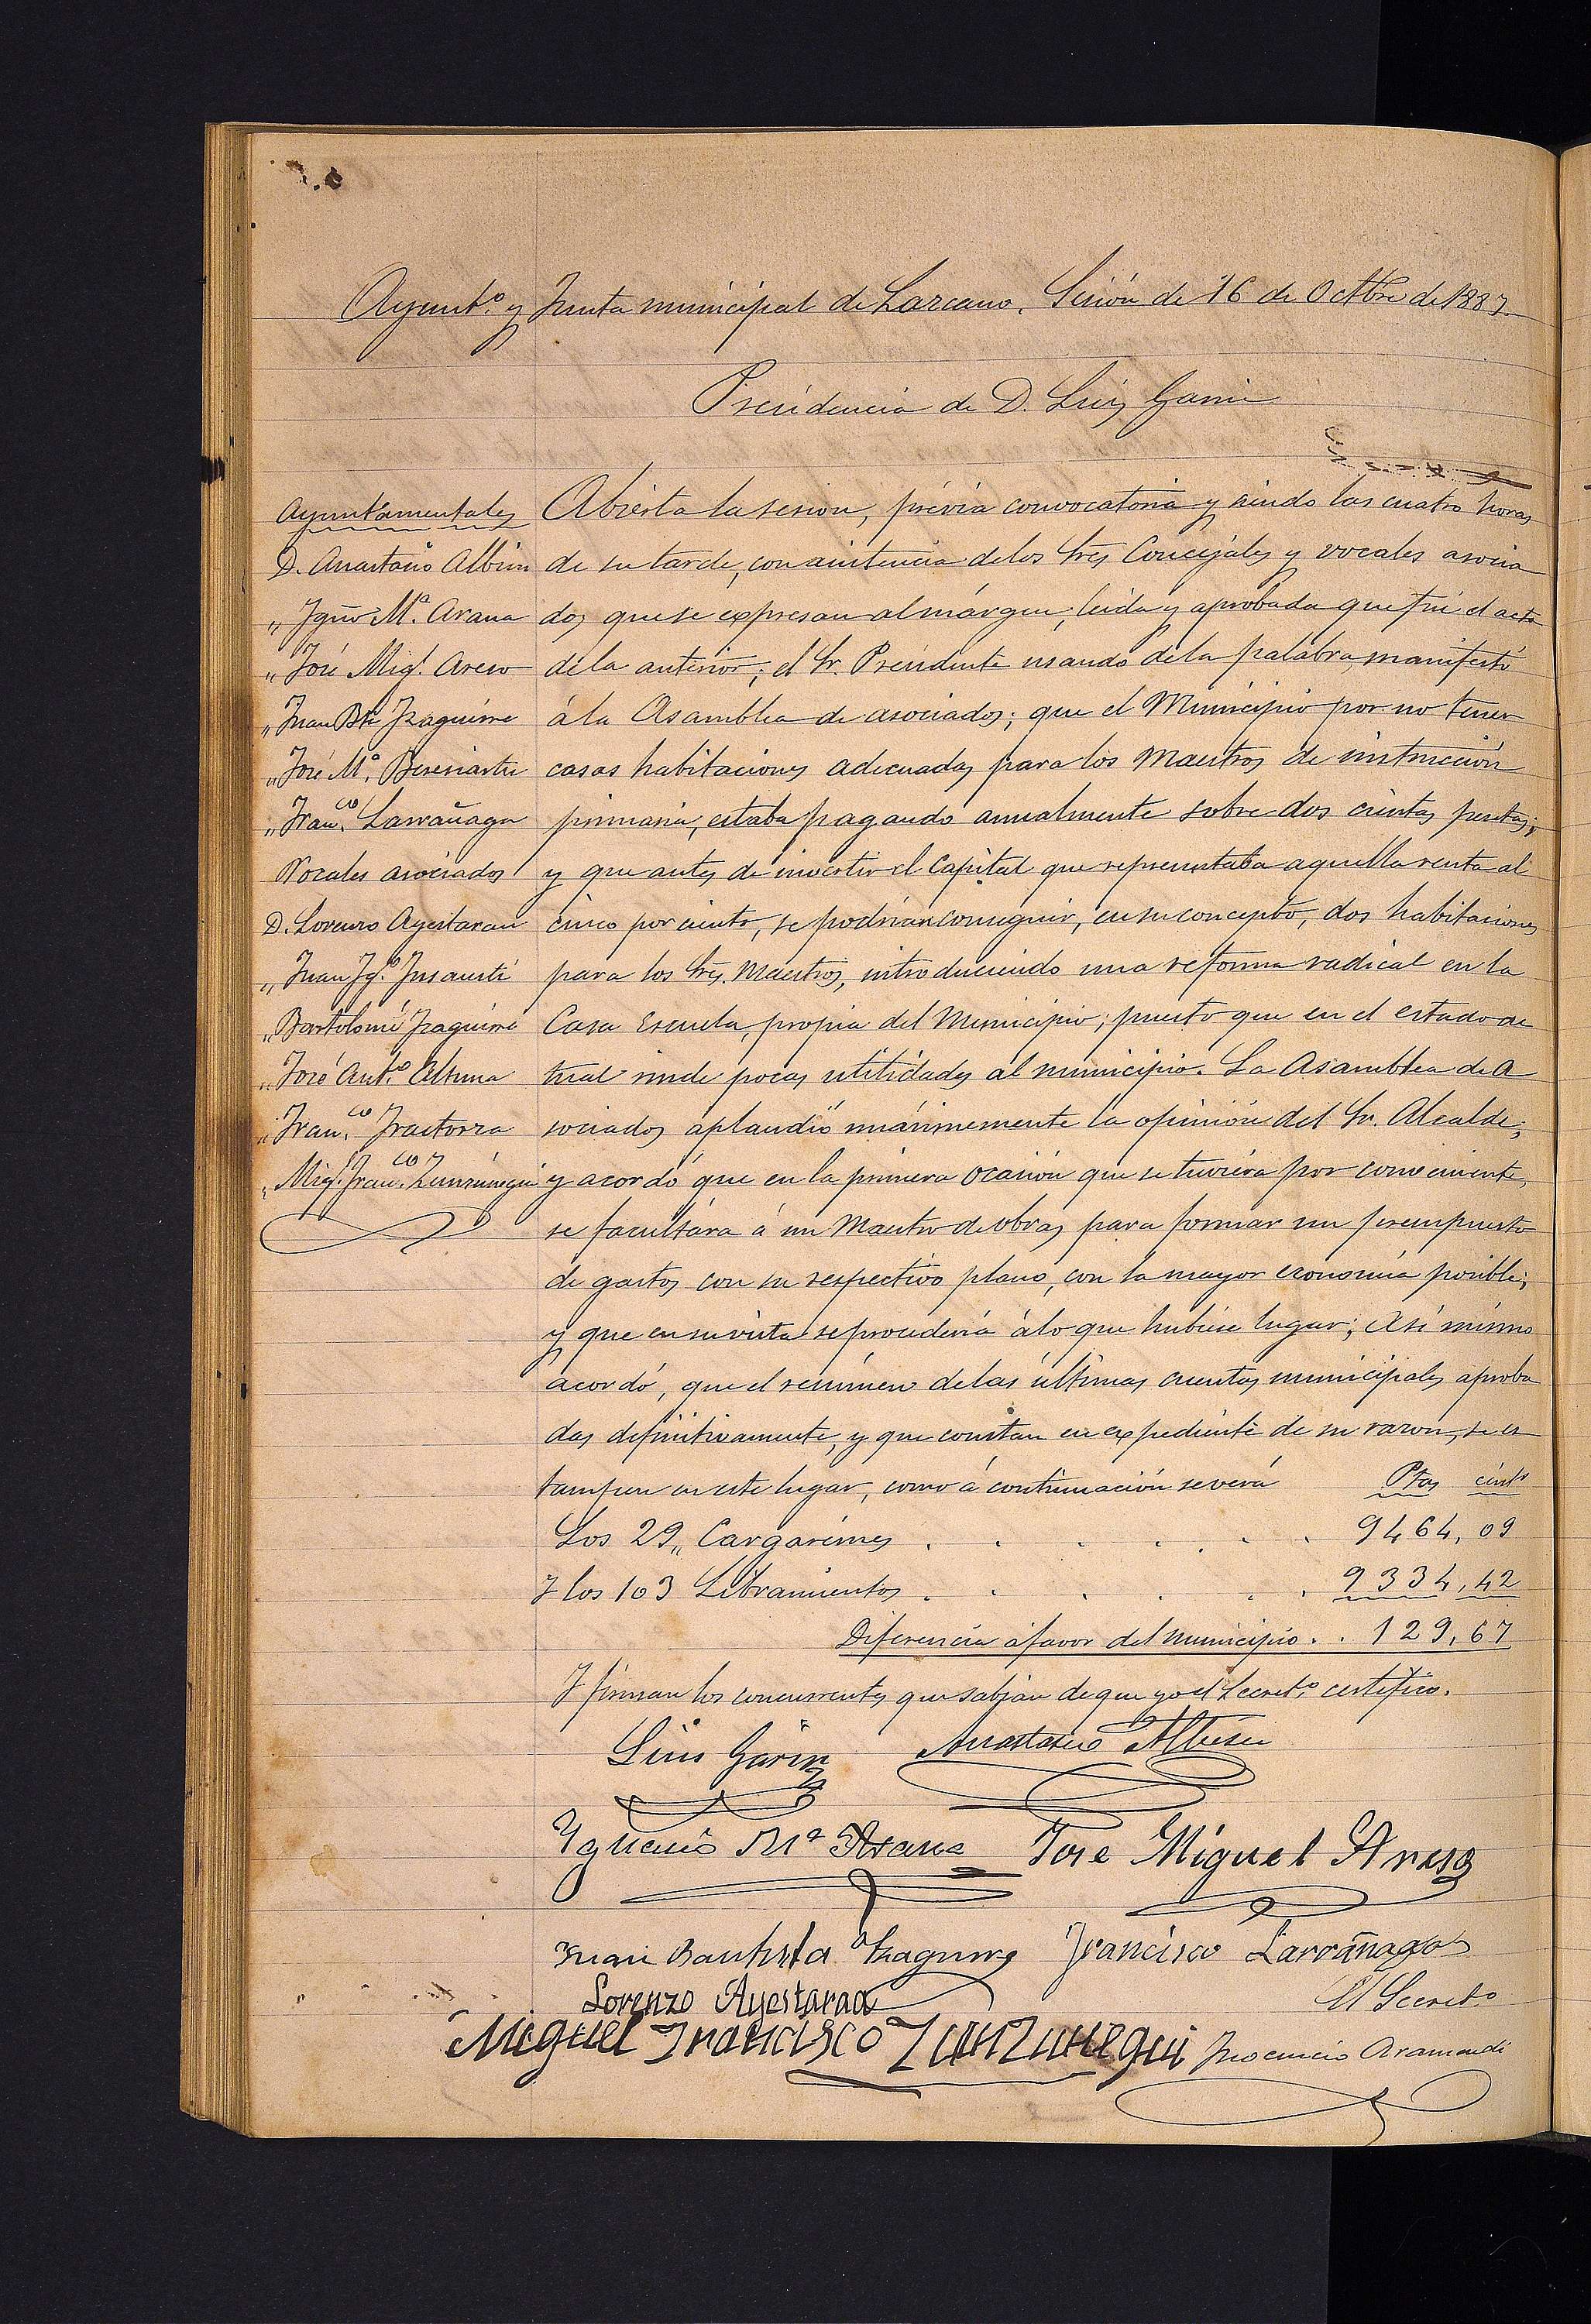 Ayunt.º y Junta municipal de Lazcano. Sesión de 16 de Octbre de 1887.
Presidencia de D. Luis Garin
Ayuntamentales
D. Anastasio Albisu
„ Ygn.º M.ª Arana
„ José Mig.l Areso
„ Juan Bta Yzaguirre
„ José M.ª Beresiartu
„ Fran.co Larrañaga
Vocales asociados
D. Lorenzo Ayestaran
„ Juan Yg.º Insausti
„ Bartolomé Yzaguirre
„ José Ant.º Altuna
„ Fran.co Yraetorza
„ Mig.l Fran.co Zunzunegui
Abierta la sesion, prévia convocatoria y siendo las cuatro horas
de su tarde, con asistencia de los Sres Concejales y vocales asocia
dos que se expresan al márgen; leida y aprobada que fué el acta
de la anterior; el Sr. Presidente usando de la palabra, manifestó
á la Asamblea de asociados; que el Municipio por no tener
casas habitaciones adecuadas para los Maestros de instrucción
primaria, estaba pagando anualmente sobre dos cientas pesetas;
y que antes de invertir el Capital que representaba aquella renta al
cinco por ciento, se podrian conseguir, en su concepto, dos habitaciones
para los Sres. Maestros, introduciendo una reforma radical en la
Casa Escuela, propia del Municipio; puesto que en el estado ac
tual rinde pocas utilidades al municipio. La Asamblea de a
sociados aplaudió unánimemente la opinión del Sr. Alcalde;
y acordó que en la primera ocasión que se tuviera por conveniente,
se facultára á un Maestro de obras para formar un presupuesto
de gastos con su respectivo plano, con la mayor economía posible;
y que en su vista se procederia á lo que hubiese lugar; Asi mismo
acordó, que el resúmen de las últimas cuentas municipales aproba
das definitivamente, y que constan en expediente de su razon, se es
tampen en este lugar, como á continuación se verá Ptas cénts
Los 29„ Cargarémes . . . . . . 9464,09
Y los 103 Libramientos . . . . . 9334,42
Diferencia á favor del municipio . . 129,67
Y firman los concurrentes que sabian de que yo el Secret.º certifico.
Luis Garin Anastasio Albisu
Ygnacio M.ª Arana Jose Miguel Areso
Juan Bautista Yzaguirre Francisco Larrañaga
Lorenzo Ayestaran El Secret.º
Miguel Francisco Zunzunegui Inocencio Aramendi